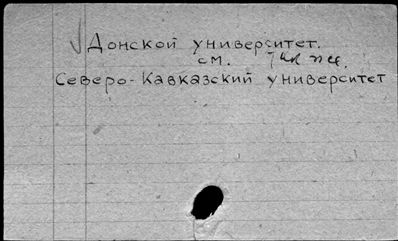 Донской университет.
см. также.
Северо-Кавказский университет